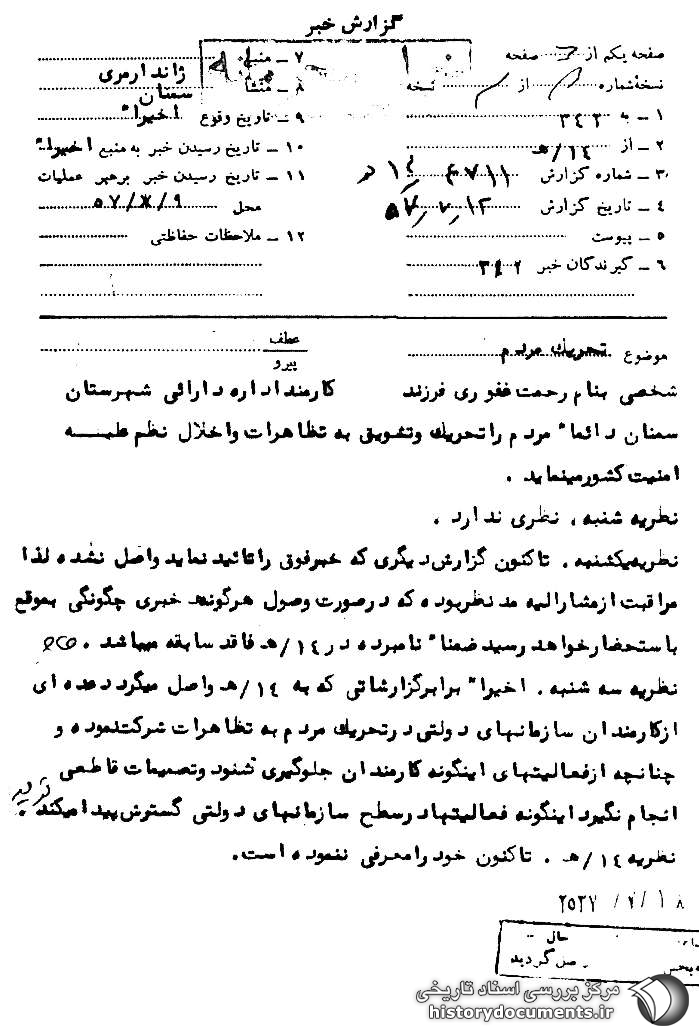 گزارش خبر
صفحه یکم از صفحه
نسخه شماره از نسخه
۱ ـ به ۳۴۲
۲ ـ از ۱۴/هـ
۳ ـ شماره گزارش ۴۷۱۱
۴ ـ تاریخ گزارش ۵۷
۵ ـ پیوست
۶ ـ گیرندگان خبر ۳۴۲
۷ ـ منبع
۸ ـ منشأ ژاندارمری سمنان
۹ ـ تاریخ وقوع اخیرا"
۱۰ ـ تاریخ رسیدن خبر به منبع اخیرا"
۱۱ ـ تاریخ رسیدن خبر برهبر عملیات
محل ۵۷/۷/۹
۱۲ ـ ملاحظات حفاظتی
موضوع تحریک مردم
عطف
پیرو
شخصی بنام رحمت غفوری فرزند کارمند اداره دارائی شهرستان
سمنان دائما" مردم را تحریک وتشویق به تظاهرات واخلال نظم علیه
امنیت کشور مینماید .
نظریه شنبه . نظری ندارد .
نظریه یکشنبه . تاکنون گزارش دیگری که خبر فوق را تائید نماید واصل نشده لذا
مراقبت از مشارالیه مد نظر بوده که در صورت وصول هرگونه خبری چگونگی بموقع
باستحضار خواهد رسید ضمنا" نامبرده در ۱۴/هـ فاقد سابقه میباشد .
نظریه سه شنبه . اخیرا" برابر گزارشاتی که به ۱۴/هـ واصل میگردد عده ای
از کارمندان سازمانهای دولتی در تحریک مردم به تظاهرات شرکت نموده و
چنانچه از فعالیتهای اینگونه کارمندان جلوگیری نشود وتصمیمات قاطعی
انجام نگیرد اینگونه فعالیتها در سطح سازمانهای دولتی گسترش پیدا میکند .
نظریه ۱۴/هـ . تاکنون خود را معرفی ننموده است.
۲۵۳۷
حال
گردید
مرکز بررسی اسناد تاریخی
historydocuments.ir